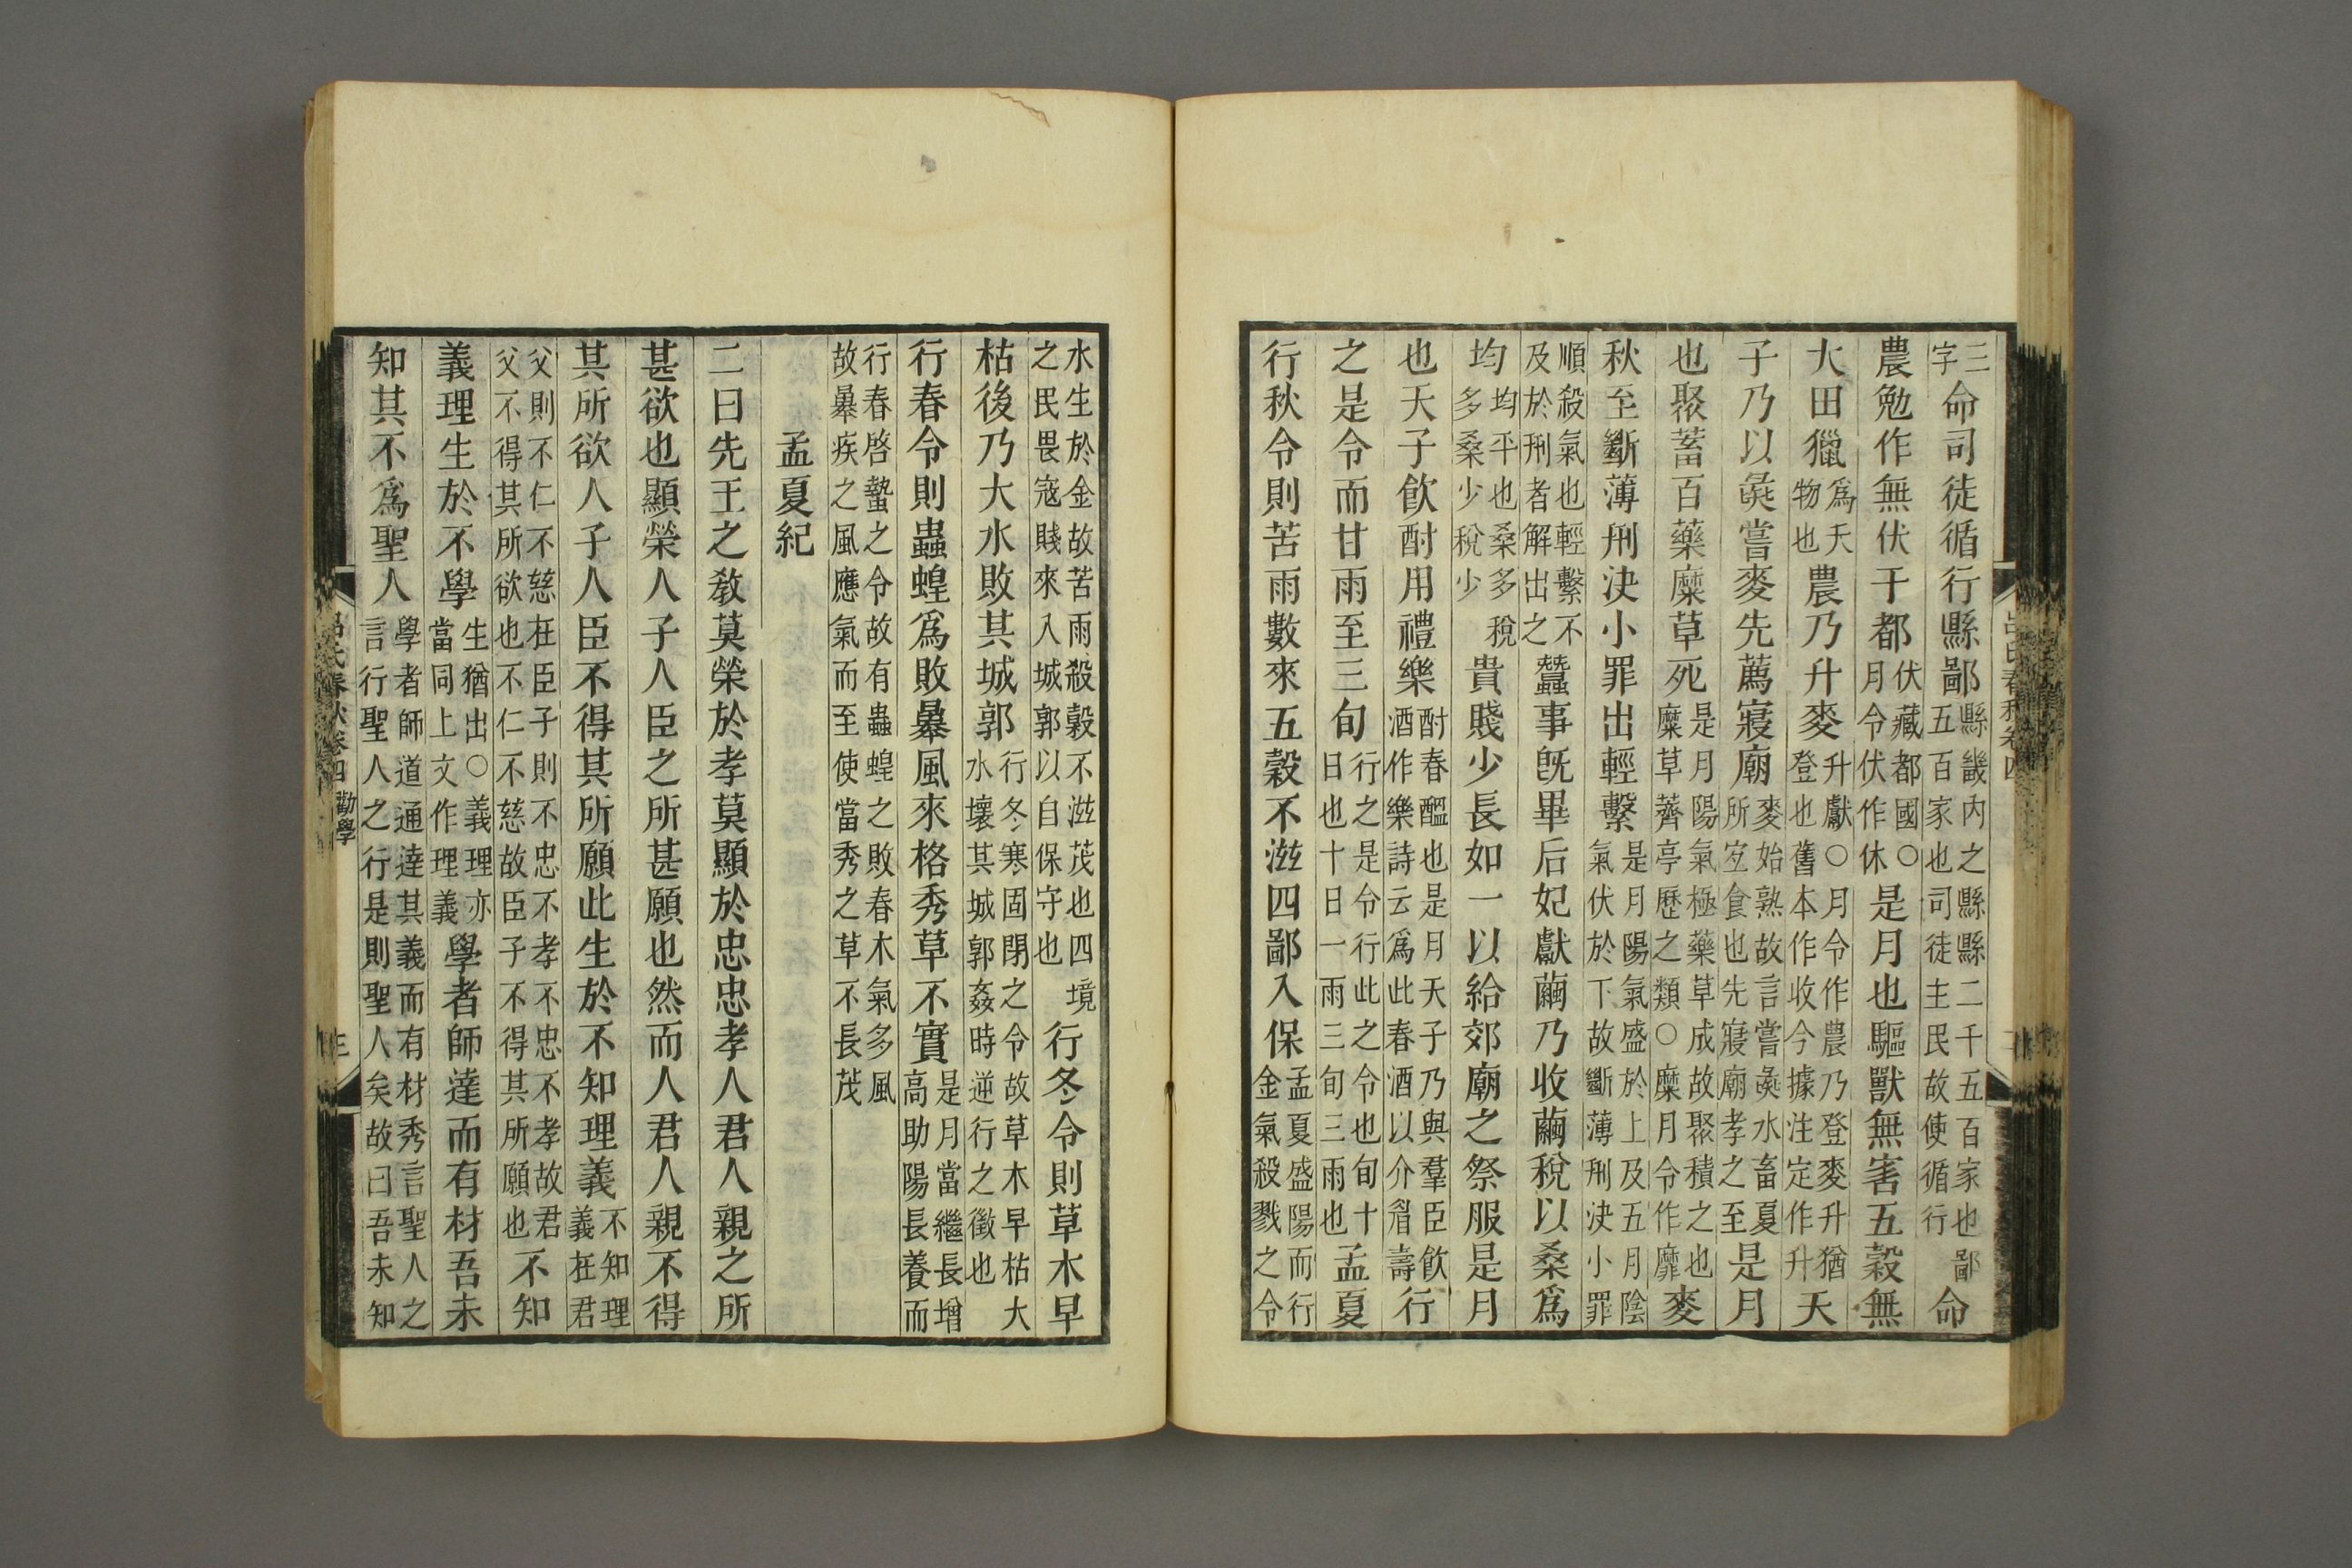 三字命司徒循行縣鄙縣畿內之縣縣二千五百家也鄙五百家也司徒主民故使循行命
農勉作無伏于都伏藏都國○月令伏作休是月也驅獸無害五穀無
大田獵爲天物也農乃升麥升獻○月令作農乃登麥升猶登也舊本作收今據注定作升天
子乃以彘嘗麥先薦寢廟麥始熟故言嘗彘水畜夏所宐食也先寢廟孝之至是月
也聚蓄百藥糜草死是月陽氣極藥草成故聚積之也糜草薺亭歷之類○糜月令作靡麥
秋至斷薄刑決小罪出輕繫是月陽氣盛於上及五月陰氣伏於下故斷薄刑決小罪
順殺氣也輕繫不及於刑者解出之蠶事旣畢后妃獻繭乃收繭稅以桑爲
均均平也桑多稅多桑少稅少貴賤少長如一以給郊廟之祭服是月
也天子飮酎用禮樂酎春醞也是月天子乃與羣臣飮酒作樂詩云爲此春酒以介眉壽行
之是令而甘雨至三旬行之是令行此之令也旬十日也十日一雨三旬三雨也孟夏
行秋令則苦雨數來五穀不滋四鄙入保孟夏盛陽而行金氣殺戮之令
水生於金故苦雨殺穀不滋茂也四境之民畏寇賊來入城郭以自保守也行冬令則草木早
枯後乃大水敗其城郭行冬寒固閉之令故草木早枯大水壞其城郭姦時逆行之徵也
行春令則蟲蝗爲敗暴風來格秀草不實是月當繼長增高助陽長養而
行春啓蟄之令故有蟲蝗之敗春木氣多風故暴疾之風應氣而至使當秀之草不長茂
孟夏紀
二曰先王之敎莫榮於孝莫顯於忠忠孝人君人親之所
甚欲也顯榮人子人臣之所甚願也然而人君人親不得
其所欲人子人臣不得其所願此生於不知理義不知理義在君
父則不仁不慈在臣子則不忠不孝不忠不孝故君父不得其所欲也不仁不慈故臣子不得其所願也不知
義理生於不學生猶出○義理亦當同上文作理義學者師達而有材吾未
知其不爲聖人學者師道通達其義而有材秀言聖人之言行聖人之行是則聖人矣故曰吾未知
呂氏春秋卷四 勸學